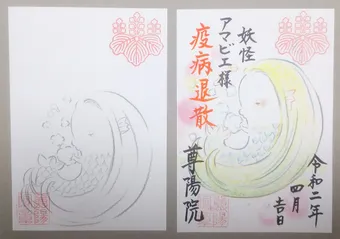 妖怪
アマビエ様
疫病退散
尊陽院
令和二年
四月
吉日